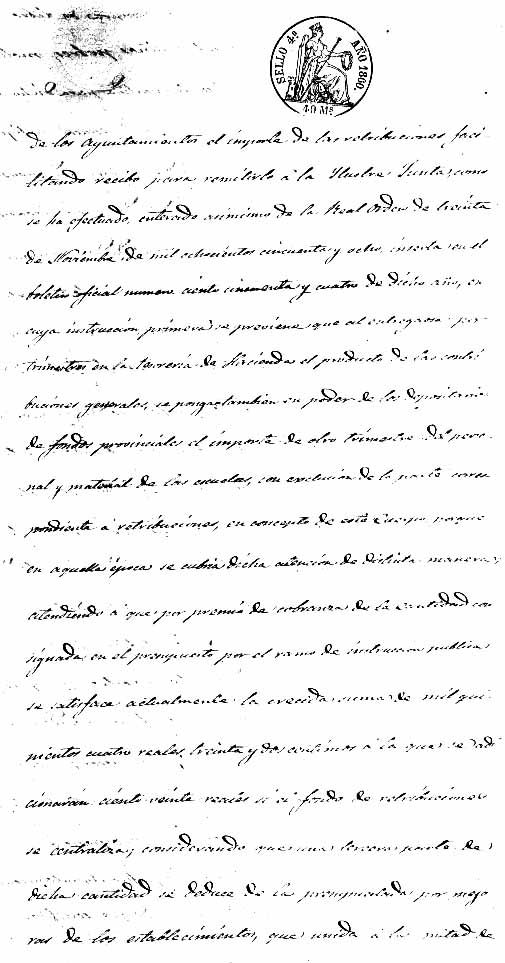 SELLO 4º AÑO 1860.
40 Mˢ
de los Ayuntamientos el importe de las retribuciones faci
litando recibo para remitirlo á la Ilustre Junta, como
se ha efectuado, enterado asimismo de la Real Orden de treinta
de Noviembre de mil ochocientos cincuenta y ocho, inserta en el
boletin oficial numero ciento cincuenta y cuatro de dicho año, en
cuya instruccion primera se previene que al entregarse por
trimestres en la tesoreria de Hacienda el producto de las contri
buciones generales, se ponga tambien en poder de los depositarios
de fondos provinciales el importe de otro trimestre del perso
nal y material de las escuelas, con exclusion de la parte corres
pondiente á retribuciones, en concepto de este Cuerpo porque
en aquella época se cubria dicha atencion de distinta manera;
atendiendo á que por premio de cobranza de la cantidad con
signada en el presupuesto por el ramo de instruccion publica
se satisface actualmente la crecida suma de mil qui
nientos cuatro reales, treinta y dos centimos á la que se adi
cionarán ciento veinte reales si el fondo de retribuciones
se centraliza, y considerando que una tercera parte de
dicha cantidad se deduce de la presupuestada por mejo
ras de los establecimientos, que unida á la mitad de